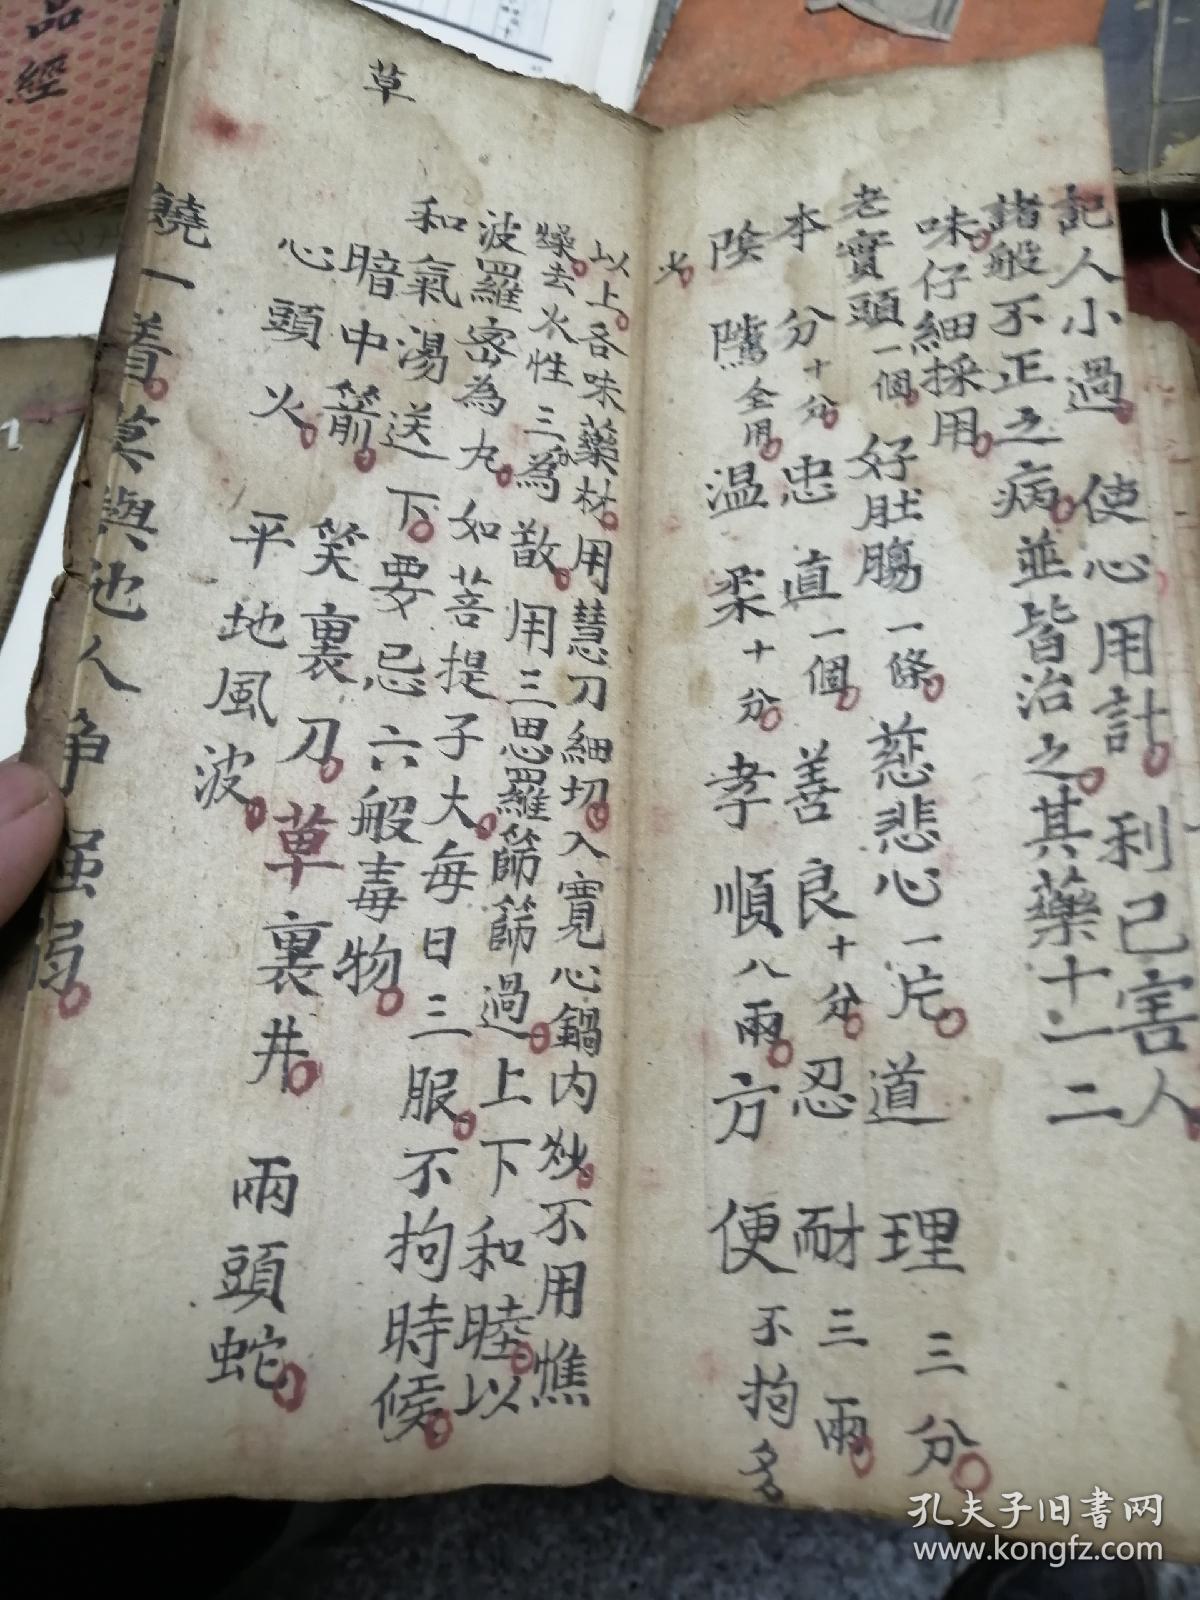 記人小過使心用計利己害人
諸般不正之病並皆治之其藥十一二
味仔細採用
老實頭一個好肚腸一條慈悲心一片道理三分
本分十分忠直一個善良十分忍耐三兩
陰隲全用温柔十分孝順八兩方便不拘多
少
以上各味藥材用慧刀細切入寬心鍋内炒不用憔
燥去火性三為散用三思羅篩篩過上下和睦以
波羅密為丸如菩提子大每日三服不拘時候
和氣湯送下要忌六般毒物
暗中箭笑裏刀草裏井兩頭蛇
心頭火平地風波
饒一着莫與他人爭强弱
草
品經
孔夫子旧书网
www.kongfz.com